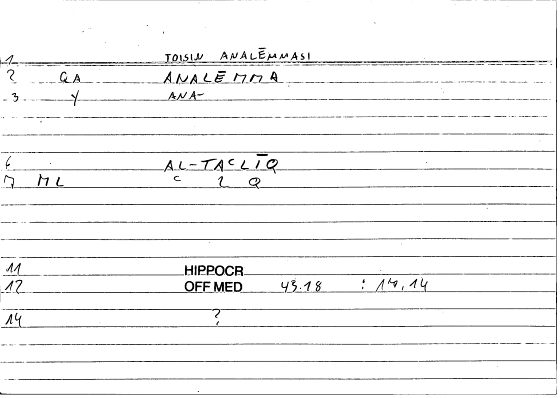 1 TOISIN ANALĒMMASI
2 GA ANALĒMMA
3 Y ANA-
6 AL-TAʿLĪQ
7 ML ʿ L Q
11 HIPPOCR
12 OFF MED 43.18 : 14,14
14 ?